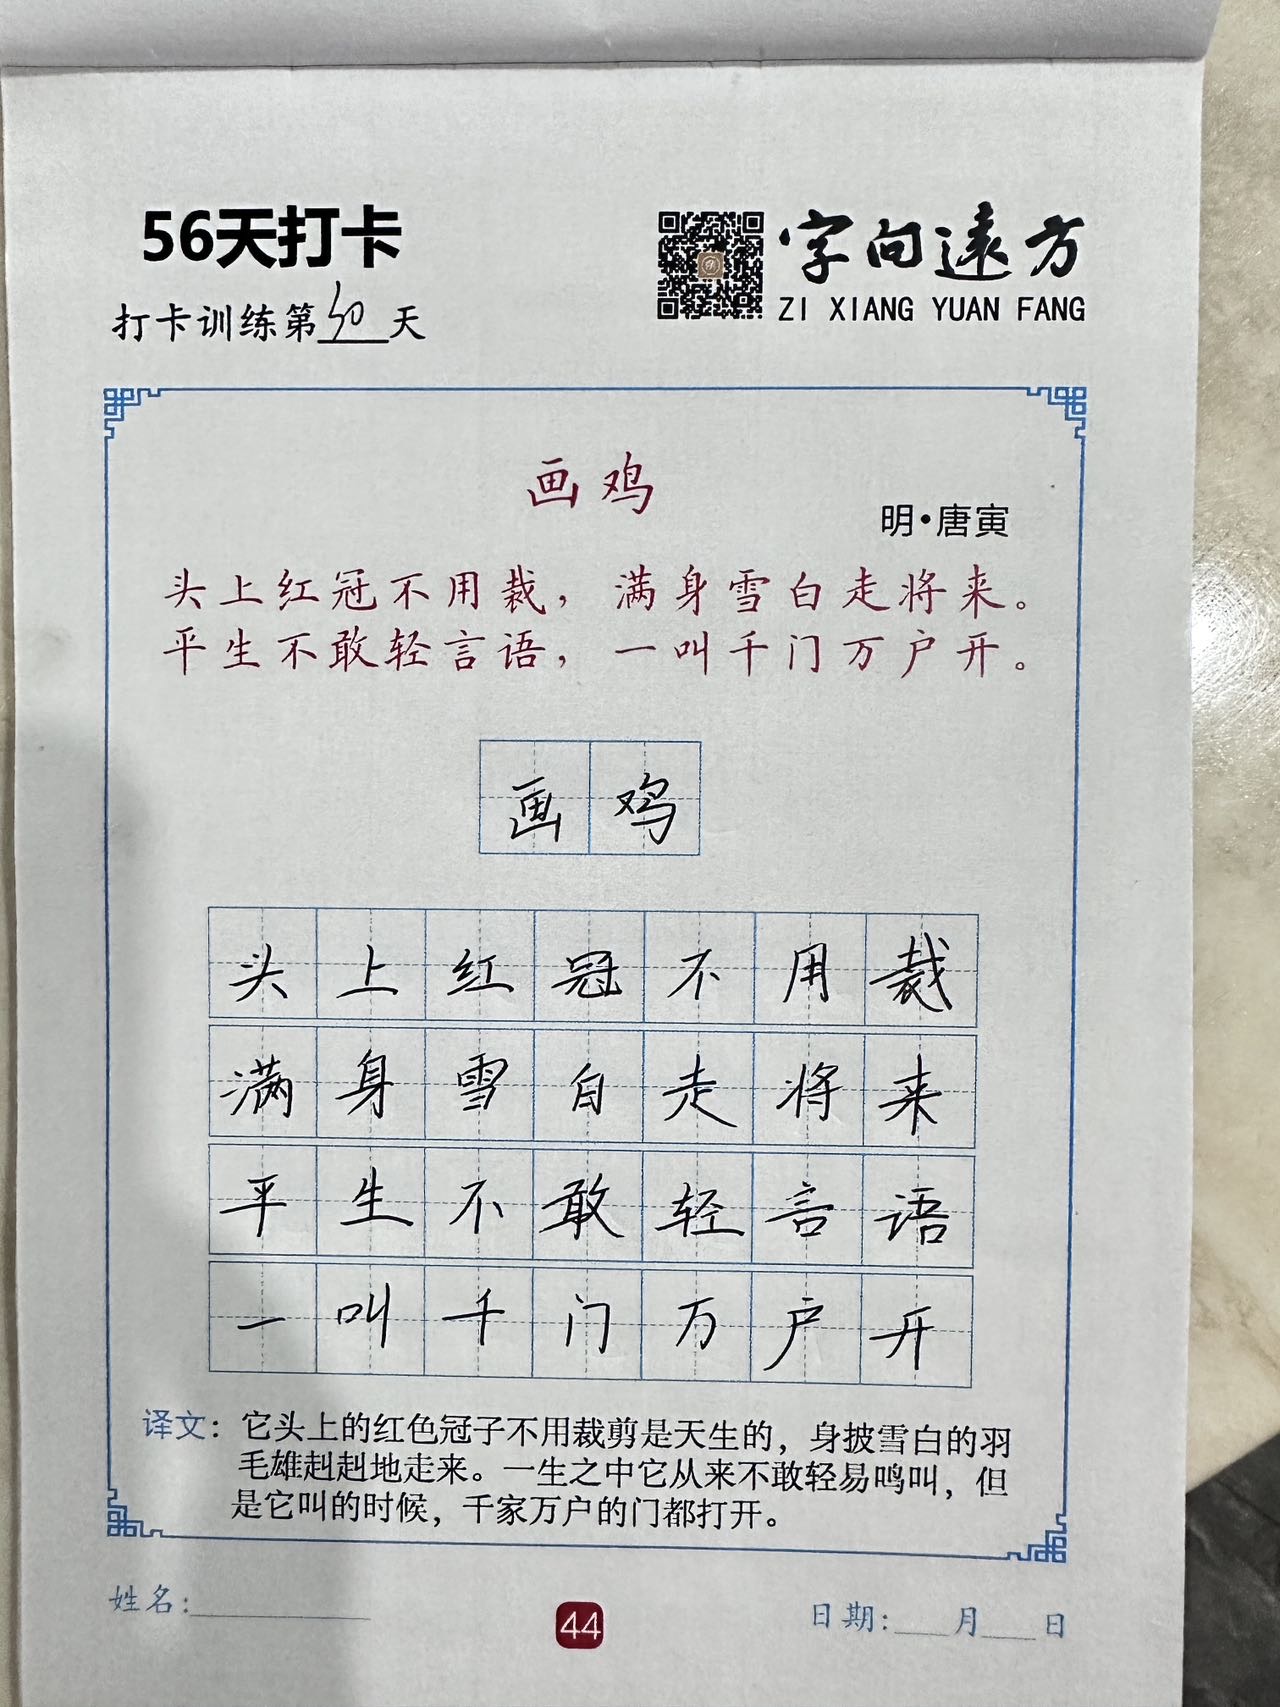 56天打卡
字向遠方
ZI XIANG YUAN FANG
打卡训练第50天
画鸡
明·唐寅
头上红冠不用裁，满身雪白走将来。
平生不敢轻言语，一叫千门万户开。
画鸡
头上红冠不用裁
满身雪白走将来
平生不敢轻言语
一叫千门万户开
译文：它头上的红色冠子不用裁剪是天生的，身披雪白的羽
毛雄赳赳地走来。一生之中它从来不敢轻易鸣叫，但
是它叫的时候，千家万户的门都打开。
姓名：
44
日期： 月 日